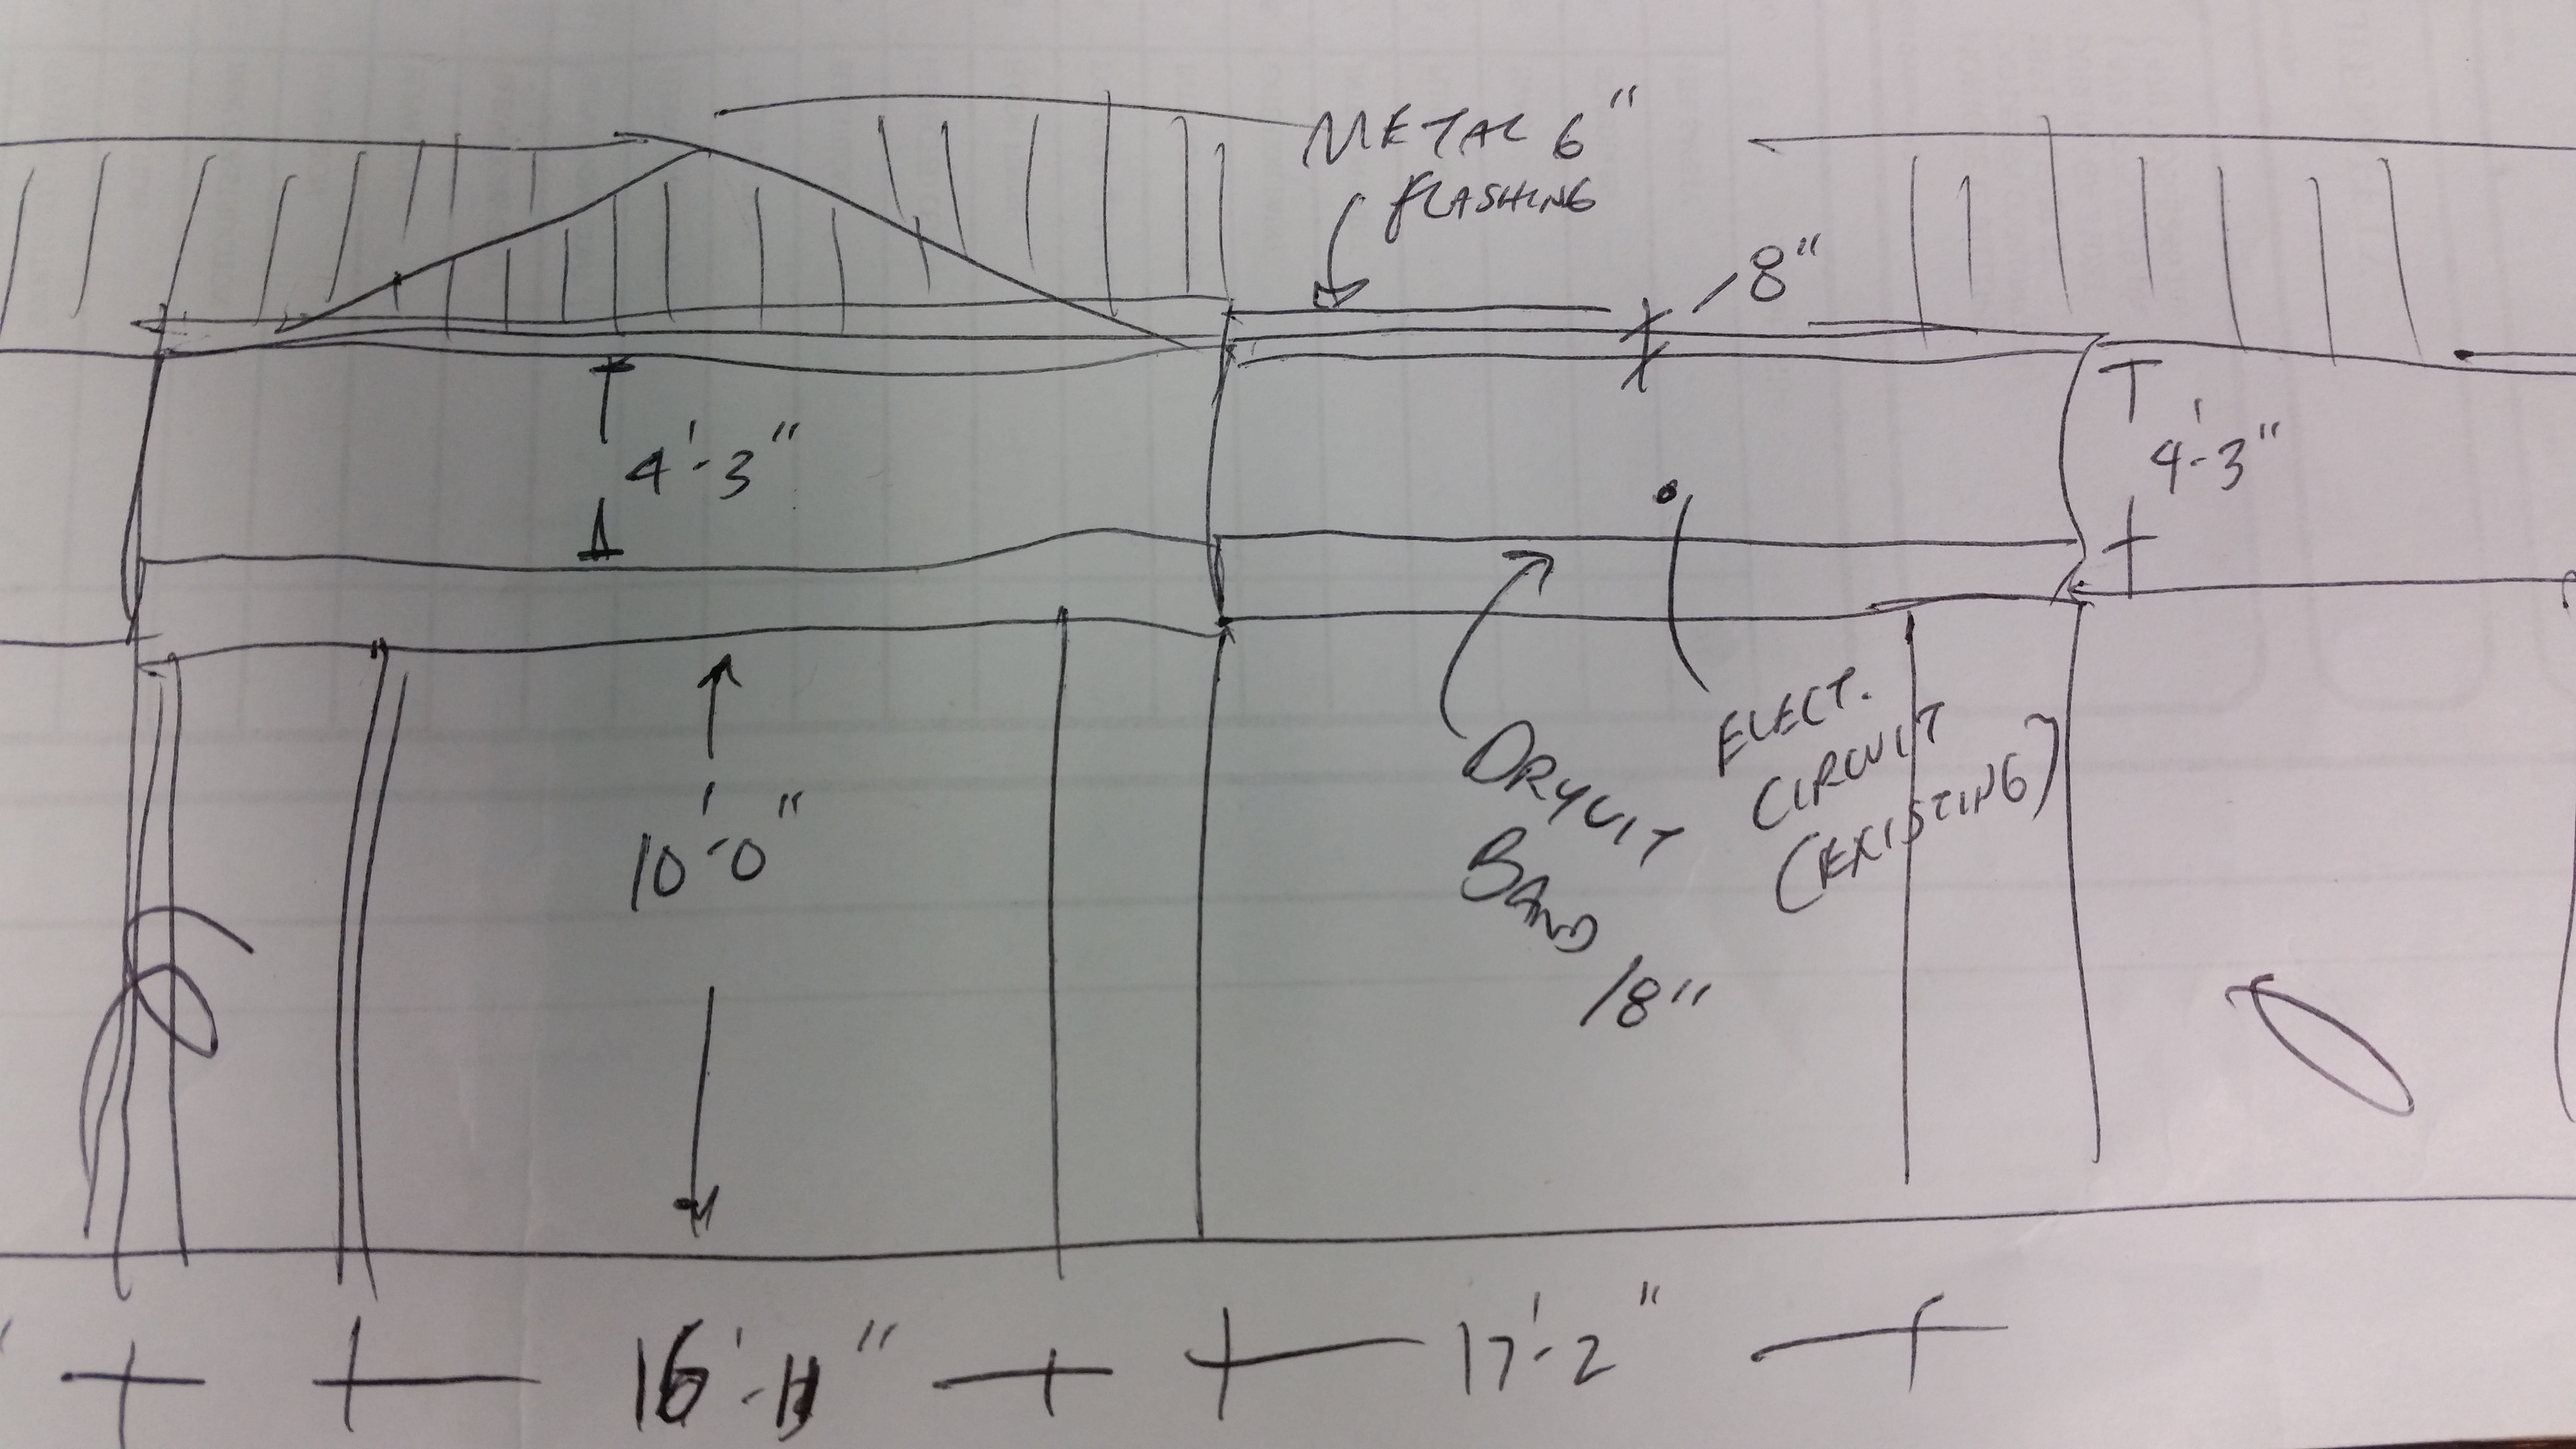 METAL 6"
FLASHING
8"
4'-3"
4'-3"
ELECT.
CIRCUIT
(EXISTING)
DRYVIT
BAND
18"
10'-0"
16'-11"
17'-2"